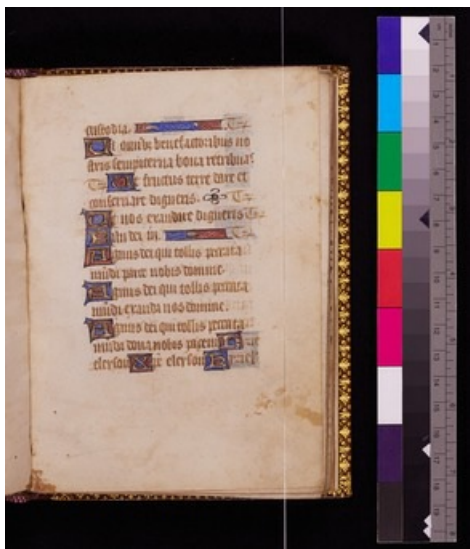 custodia.
Ut omnibus benefactoribus no
stris sempiterna bona retribuas
Ut fructus terre dare et
conservare digneris.
Ut nos exaudire digneris
Fili dei
Agnus dei qui tollis peccata
mundi parce nobis domine.
Agnus dei qui tollis peccata
mundi exaudi nos domine.
Agnus dei qui tollis peccata
mundi dona nobis pacem
eleyson eleyson